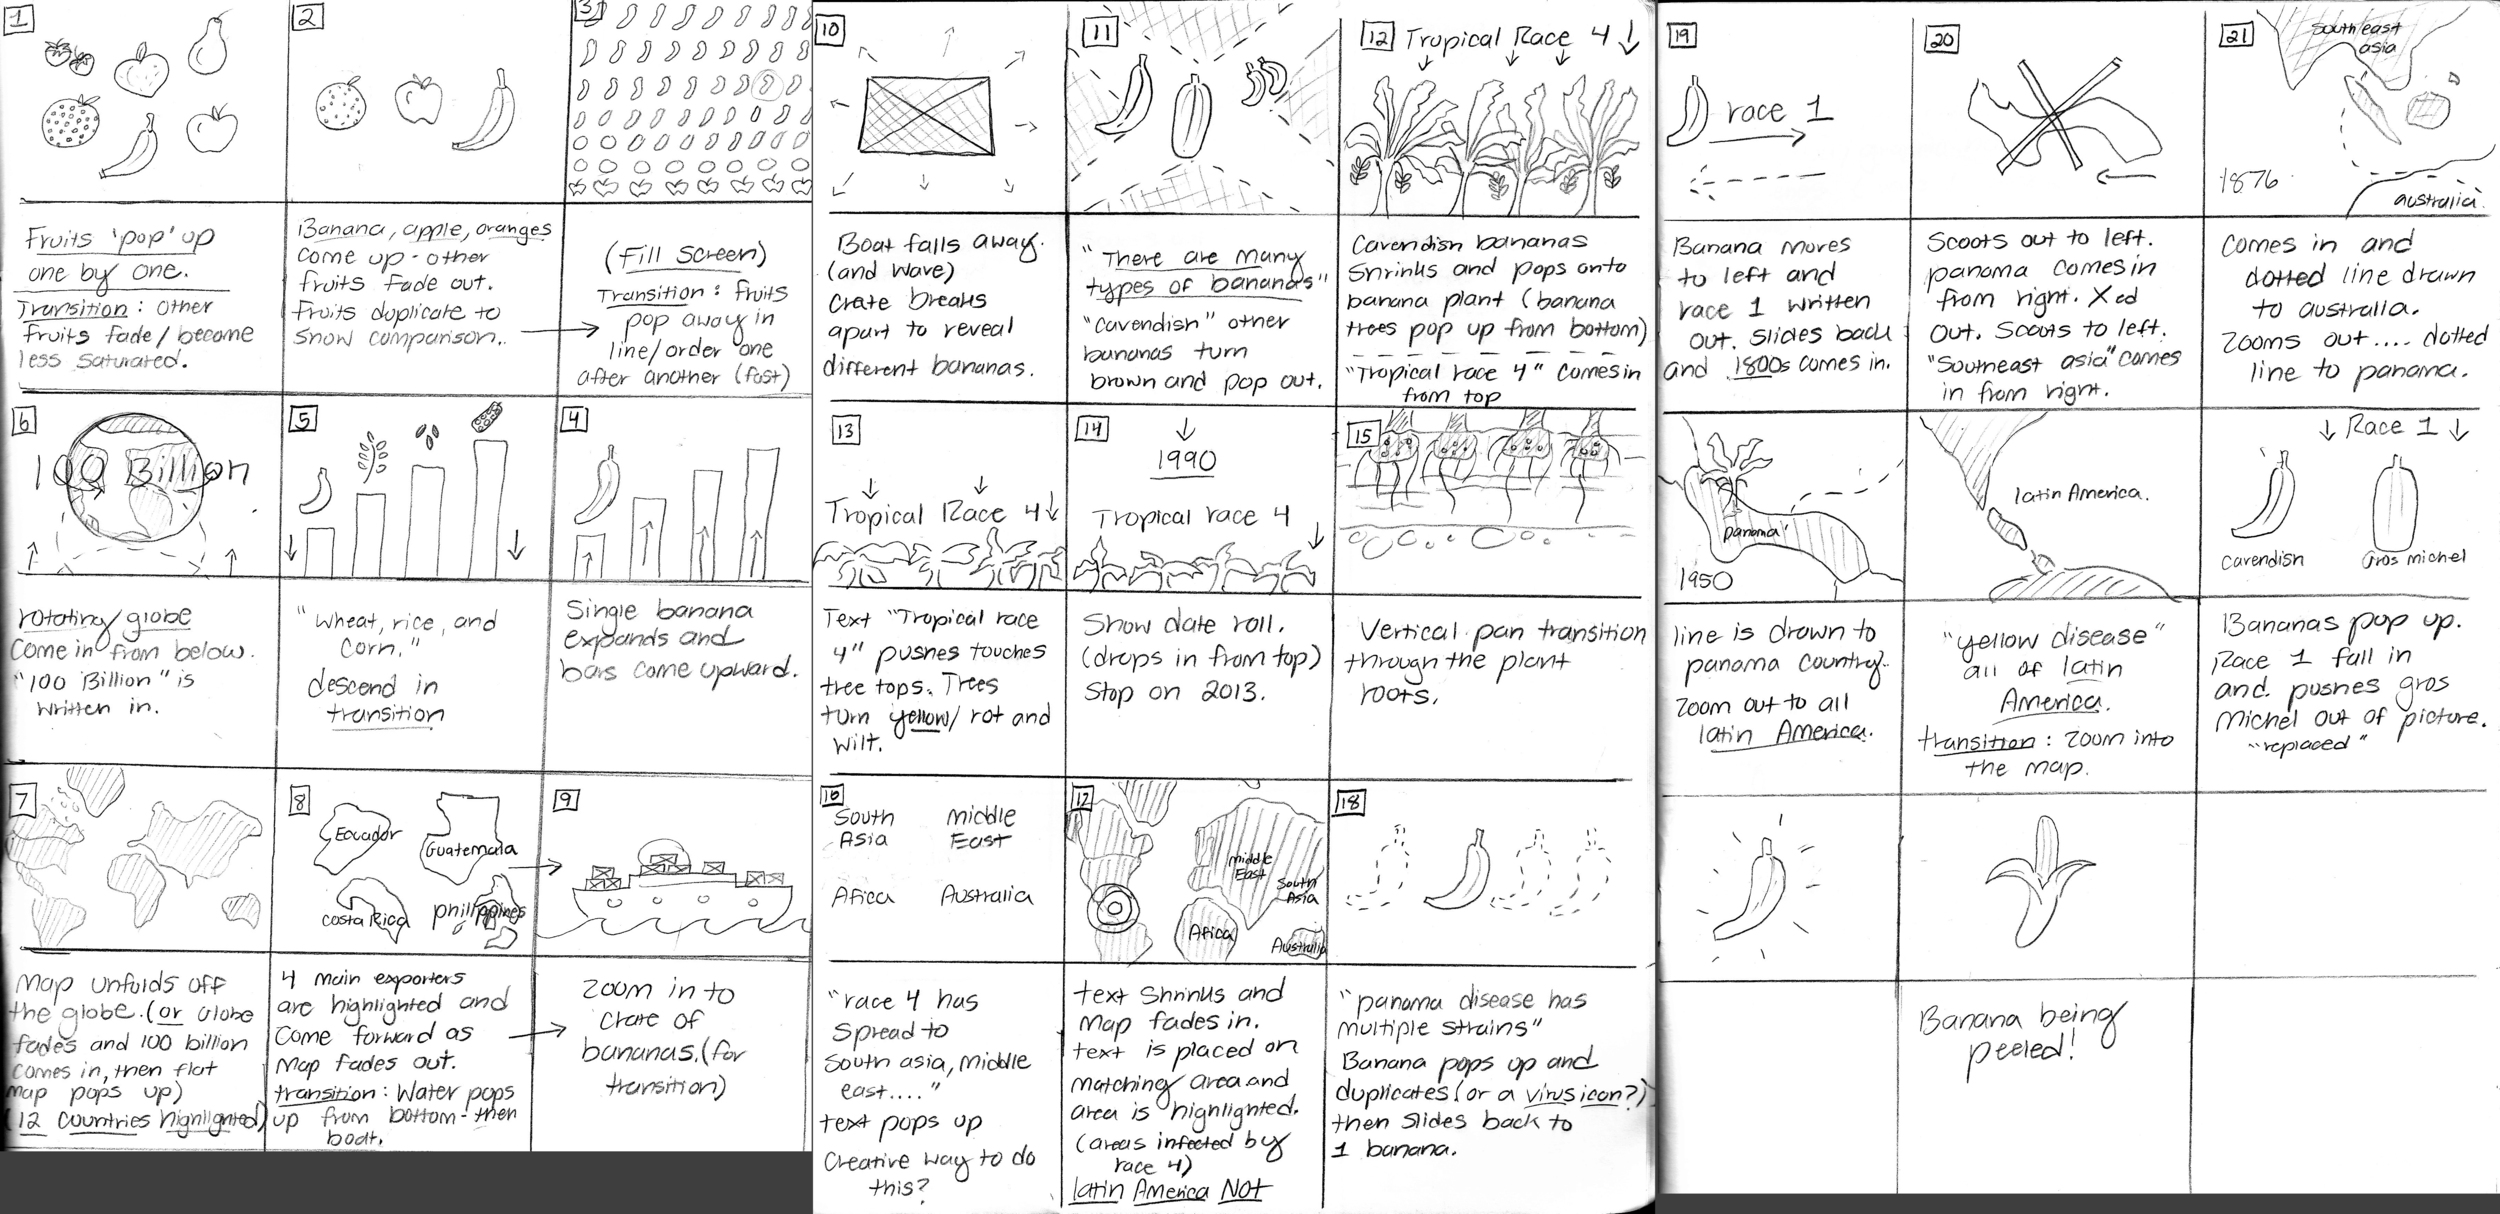 1
2
3
Fruits 'pop' up
one by one.
Transition: other
fruits fade/become
less saturated.
Banana, apple, oranges
come up - other
fruits fade out.
Fruits duplicate to
show comparison..
(Fill screen)
Transition: fruits
pop away in
line/order one
after another (fast)
6
100 Billion
5
4
rotating globe
Come in from below.
"100 Billion" is
written in.
"Wheat, rice, and
corn."
descend in
transition
Single banana
expands and
bars come upward.
7
8
Ecuador
Guatemala
Costa Rica
philippines
9
Map unfolds off
the globe. (or Globe
fades and 100 billion
comes in, then flat
map pops up)
(12 countries highlighted)
4 main exporters
are highlighted and
come forward as
map fades out.
transition: Water pops
up from bottom - then
boat.
Zoom in to
crate of
bananas. (for
transition)
10
11
12
Tropical Race 4
Boat falls away.
(and wave)
Crate breaks
apart to reveal
different bananas.
"There are many
types of bananas"
"Cavendish" other
bananas turn
brown and pop out.
Cavendish bananas
shrinks and pops onto
banana plant (banana
trees pop up from bottom)
"Tropical race 4" comes in
from top
13
Tropical Race 4
14
1990
Tropical race 4
15
Text "Tropical race
4" pushes touches
tree tops. Trees
turn yellow/rot and
wilt.
Show date roll.
(drops in from top)
Stop on 2013.
Vertical pan transition
through the plant
roots.
16
South
Asia
middle
East
Africa
Australia
17
middle
East
South
Asia
Africa
Australia
18
"race 4 has
spread to
south asia, middle
east...."
text pops up
Creative way to do
this?
text shrinks and
map fades in.
text is placed on
matching area and
area is highlighted.
(areas infected by
race 4)
latin America NOT
"panama disease has
multiple strains"
Banana pops up and
duplicates (or a virus icon?)
then slides back to
1 banana.
19
race 1
20
21
Southeast
asia
1876
australia
Banana moves
to left and
race 1 written
out. slides back
and 1800s comes in.
Scoots out to left.
panama comes in
from right. Xed
out. Scoots to left.
"Southeast asia" comes
in from right.
Comes in and
dotted line drawn
to australia.
Zooms out.... dotted
line to panama.
panama
1950
latin America.
Race 1
cavendish
Gros michel
line is drawn to
panama country.
Zoom out to all
latin America.
"yellow disease"
all of latin
America.
transition: zoom into
the map.
Bananas pop up.
Race 1 fall in
and pushes gros
michel out of picture.
"replaced"
Banana being
peeled!